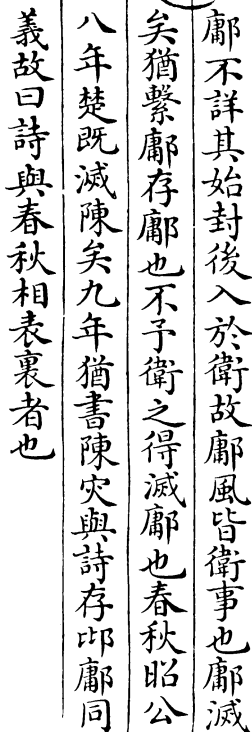 鄘不詳其始封後入於衛故鄘風皆衛事也鄘滅
矣猶繫鄘存鄘也不予衛之得滅鄘也春秋昭公
八年楚既滅陳矣九年猶書陳灾與詩存邶鄘同
義故曰詩與春秋相表裏者也